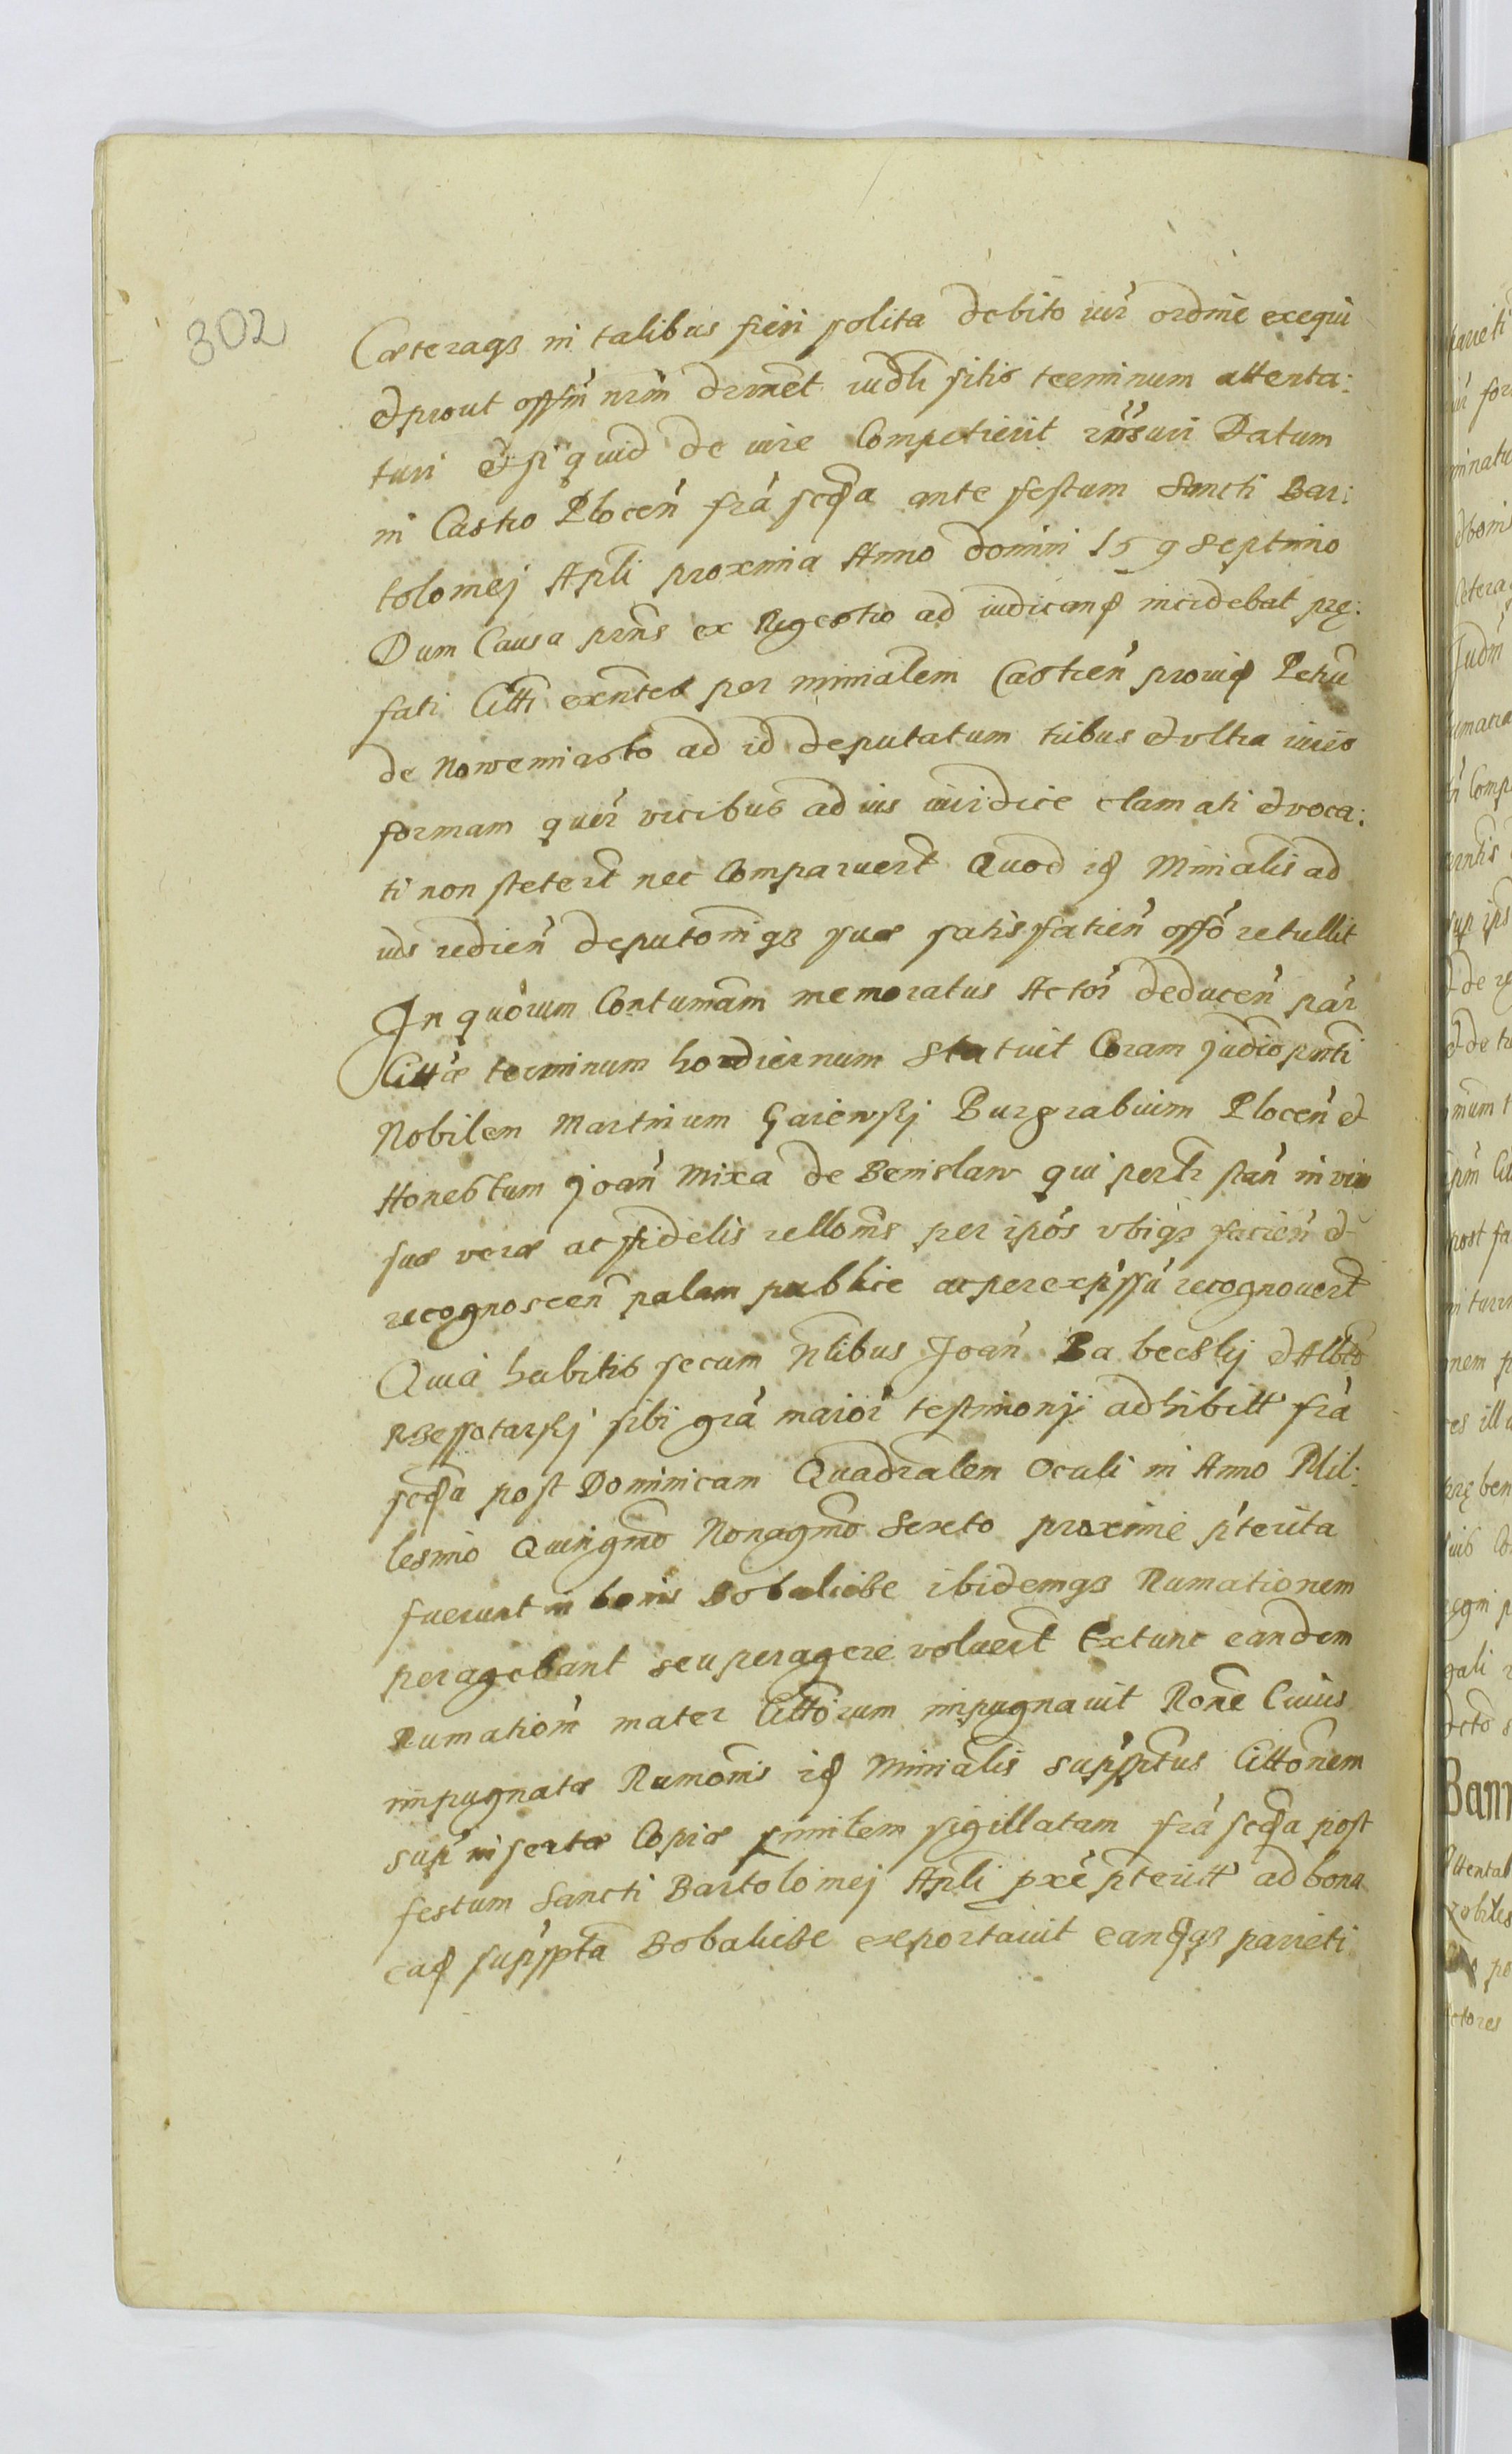 302
Cæteraqз in talibus fieri solita debito iur̃ ordine exequi
et prout offm̃ nrm̃ decernet iudlr̃ sitis terminum attenta:
turi et si quid de iure Competierit rñsuri Datum
in Castro Plocen̄ fr̃a scd̃a ante festum Sancti Bar:
tolomej Apli proxima Anno domini 159 septimo
Dum Causa prn̄s ex Regestro ad iudicand̃ incidebat prę:
fati Citti exn̄tes per minialem Castren̄ provid̃ Petrũ
de Nowemiasto ad id deputatum tribus et vltra iuris
formam quer̃ vicibus ad ius iuridice clamati et voca:
ti non stetert̃ nec Comparuert̃ Quod id̃ Minialis ad
ius redien̄ deputom̃qз suæ satisfatien̄ offõ retullit
In quorum Contumam̃ memoratus Actor̃ deducen̄ par̃
Cittæ terminum hordiernum Statuit Coram Judicio pnti
Nobilem Martinum Gaiewskj Burgrabium Plocen̄ et
Honestum Joan̄ Mixa de Benislaw qui pertr̃ stan̄ in vim
suæ veræ ac fidelis rellom̃s per ipõs vbiqз facien̄ et
recognoscen̄ palam publice ac per exp̃ssũ recognouert̃
Quia habitis secum Nlibus Joan̄ Babeckj et Albtõ
Rzessotarskj sibi gr̃a maior̃ testimonij adhibitt̃ fr̃a
scd̃a post Dominicam Quadralem Oculi in Anno Mil:
lesimo Quingm̃o Nonagm̃o Sexto proxime p̃terita
fuerunt in bonis Bobalicze ibidemqз Rumationem
peragebant seu peragere voluert̃ Extunc eandem
Rumatiom̃ mater Cittorum impugnauit Rone Cuius
impugnatæ Rumom̃s id̃ Minialis supsptus Cittonem
sup̃ insertæ Copiæ similem sigillatam fr̃a scd̃a post
festum Sancti Bartolomej Apli pxe p̃teritt̃ ad bona
ead̃ supsspta Bobalicze exportauit eand̃qз parieti
Bann